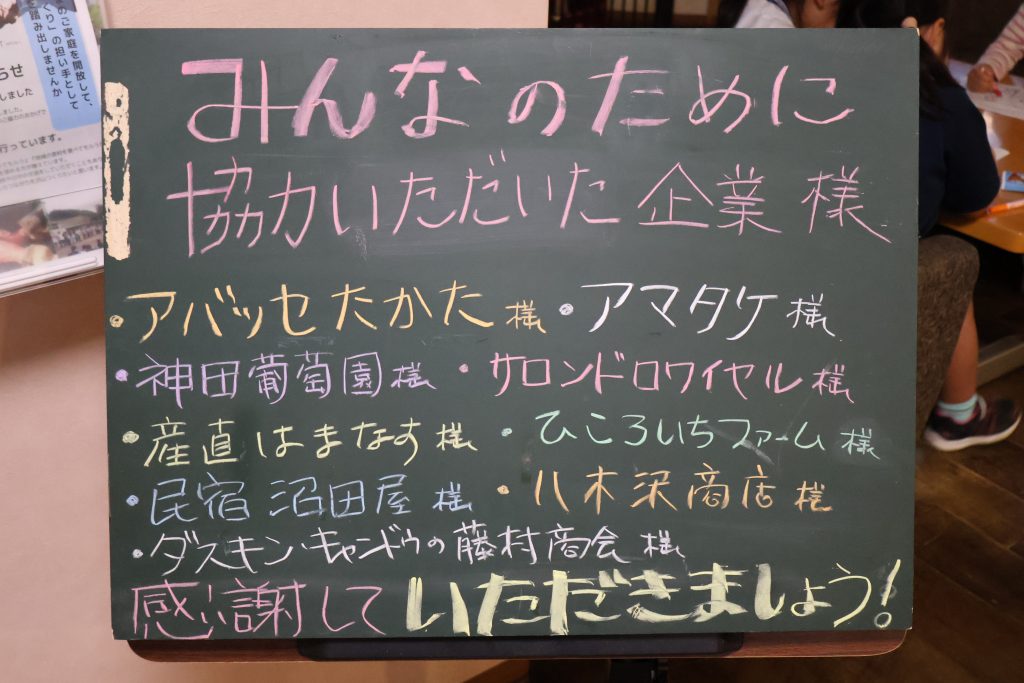 のご家庭を開放して、
くり」の担い手として
踏み出しませんか
らせ
しました
行っています。
みんなのために
協力いただいた企業様
・アバッセたかた様・アマタケ様
・神田葡萄園様・サロンドロワイヤル様
・産直はまなす様・ひころいちファーム様
・民宿沼田屋様・八木沢商店様
・ダスキン・キャンドゥの藤村商会様
感謝していただきましょう!